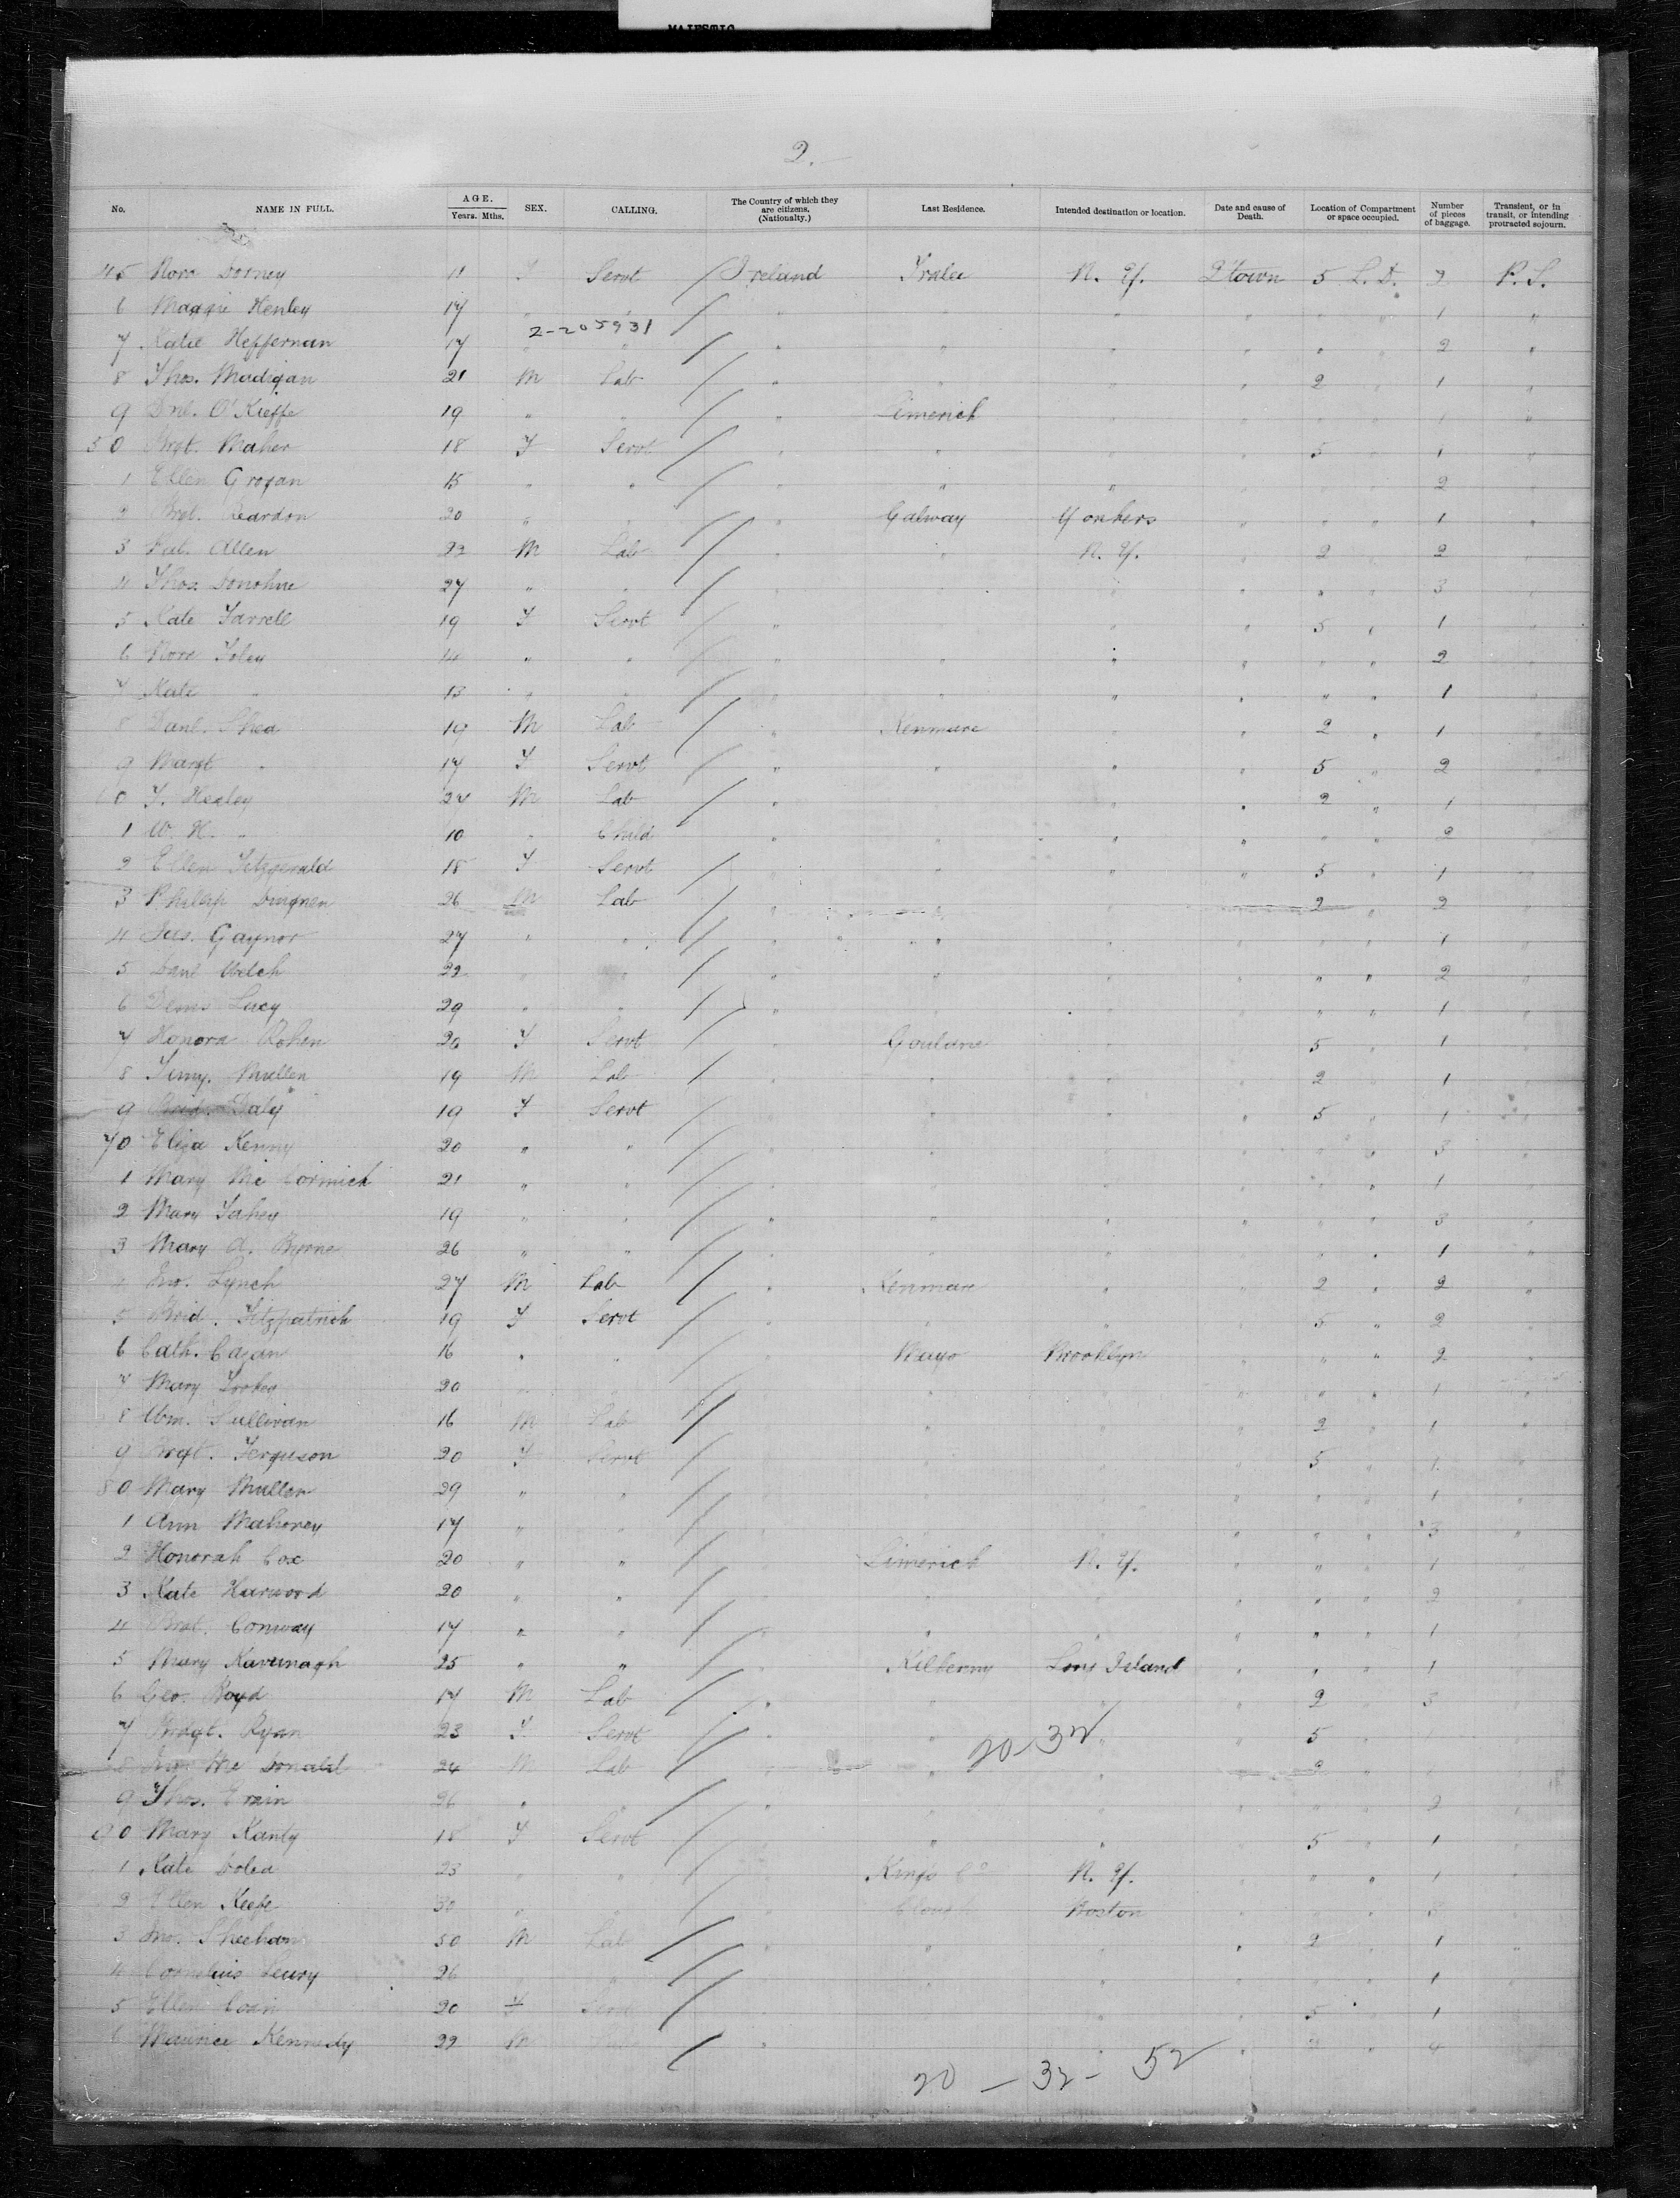 MAJESTIC
2.
No. NAME IN FULL. AGE. Years. Mths. SEX. CALLING. The Country of which they are citizens. (Nationalty.) Last Residence. Intended destination or location. Date and cause of Death. Location of Compartment or space occupied. Number of pieces of baggage. Transient, or in transit, or intending protracted sojourn.
45 Nora Dorney 11 F Servt / Ireland Tralee N. Y. Q'town 5 L. D. 2 P. S.
6 Maggie Henley 17 " " / " " " " " " 1 "
2-205931
7 Katie Heffernan 17 " " / " " " " " " 2 "
8 Thos. Madigan 21 M Lab / " " " " 2 " 1 "
9 O'Kieffe 19 " " / " Limerick " " " " 1 "
50 Brgt. Maher 18 F Servt / " " " " 5 " 1 "
1 Ellen Grogan 15 " " / " " " " " " 2 "
2 Brgt. Reardon 20 " " / " Galway Yonkers " " " 1 "
3 Pat. Allen 22 M Lab / " " N. Y. " 2 " 2 "
4 Thos. Donohue 27 " " / " " " " " " 3 "
5 Kate Farrell 19 F Servt / " " " " 5 " 1 "
6 Nora Foley 14 " " / " " " " " " 2 "
7 Kate " 13 " " / " " " " " " 1 "
8 Danl. Shea 19 M Lab / " Kenmare " " 2 " 1 "
9 Margt " 17 F Servt / " " " " 5 " 2 "
60 T. Healey 24 M Lab / " " " " 2 " 1 "
1 W. H. " 10 " Child " " " " " " 2 "
2 Ellen Fitzgerald 18 F Servt / " " " " 5 " 1 "
3 Philip Duignen 26 M Lab / " " " " 2 " 2 "
4 Jas. Gaynor 27 " " / " " " " " " 1 "
5 Danl Welch 22 " " / " " " " " " 2 "
6 Denis Lucy 29 " " / " " " " " " 1 "
7 Honora Cohen 20 F Servt / " Gouldne " " 5 " 1 "
8 Timy. Mullen 19 M Lab / " " " " 2 " 1 "
9 Brid. Daly 19 F Servt / " " " " 5 " 1 "
70 Eliza Kenny 20 " " / " " " " " " 3 "
1 Mary Mc Cormick 21 " " / " " " " " " 1 "
2 Mary Fahey 19 " " / " " " " " " 3 "
3 Mary A. Byrne 26 " " / " " " " " " 1 "
4 Jno. Lynch 27 M Lab / " Kenmare " " 2 " 2 "
5 Brid. Fitzpatrick 19 F Servt / " " " " 5 " 2 "
6 Cath. Cagan 16 " " / " Mayo Brooklyn " " " 2 "
7 Mary 20 " " / " " " " " " 1 "
8 Wm. Sullivan 16 M Lab / " " " " 2 " 1 "
9 Brgt. Ferguson 20 F Servt / " " " " 5 " 1 "
80 Mary Mullen 29 " " / " " " " " " 1 "
1 Ann Mahoney 17 " " / " " " " " " 3 "
2 Honorah Cox 20 " " / " Limerick N. Y. " " " 1 "
3 Kate Harwood 20 " " / " " " " " " 2 "
4 Brgt. Conway 17 " " / " " " " " " 1 "
5 Mary Kavanagh 25 " " / " Kilkenny Long Island " " " 1 "
6 Geo. Boyd 17 M Lab / " " " " 2 " 3 "
7 Bridgt. Ryan 23 F Servt / " " " " 5 "
20-32
8 Jno. Mc Donald 24 M Lab / " " " " 2 "
9 Thos. Crain 26 " " / " " " " " " 2 "
90 Mary Kanty 18 F Servt / " " " " 5 " 1 "
1 Kate Dolea 23 " " / " Kings Co N. Y. " " " 1 "
2 Ellen Keefe 30 " " / " Boston " " " 3 "
3 Jno. Sheehan 50 M Lab / " " " " 2 " 1 "
4 Cornelius Leury 26 " " / " " " " " " 1 "
5 Ellen Coan 20 F Servt / " " " " 5 " 1 "
6 Maurice Kennedy 22 M / " " " " " 4 "
20 - 32 - 52